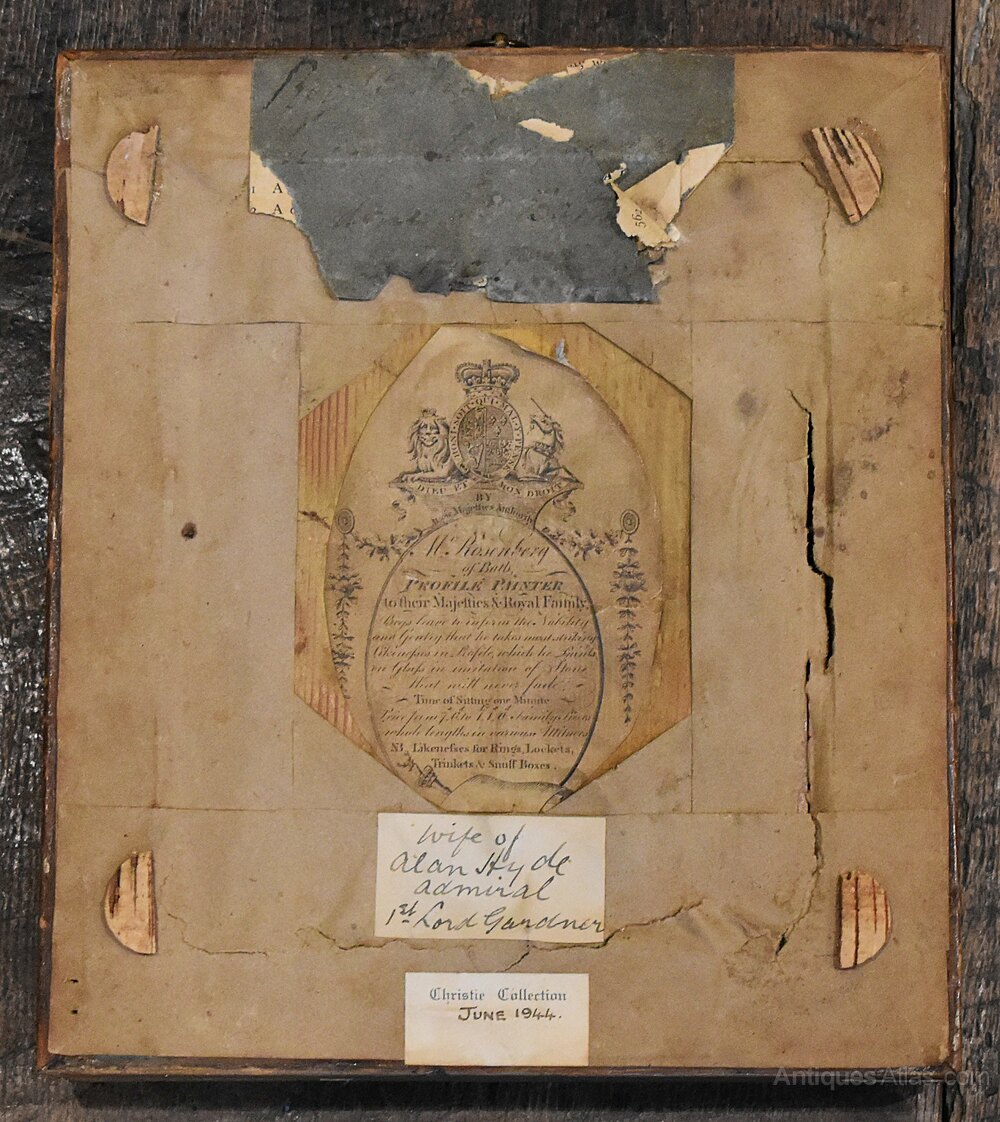 1 A
A
562
HONI·SOIT·QUI·MAL·Y·PENSE
DIEU ET MON DROIT
BY
their Majesties Authority
Mr. Rosenberg
of Bath,
PROFILE PAINTER
to their Majesties & Royal Family,
Begs leave to inform the Nobility
and Gentry that he takes most striking
Likenesses in Profile, which he Paints
on Glass in imitation of Stone
that will never fade
Time of Sitting one Minute
Price from Family Pieces
whole lengths in various Attitudes
NB, Likenesses for Rings, Lockets,
Trinkets & Snuff Boxes.
Wife of
Alan Hyde
admiral
1st Lord Gardner
Christie Collection
JUNE 1944.
AntiquesAtlas.com